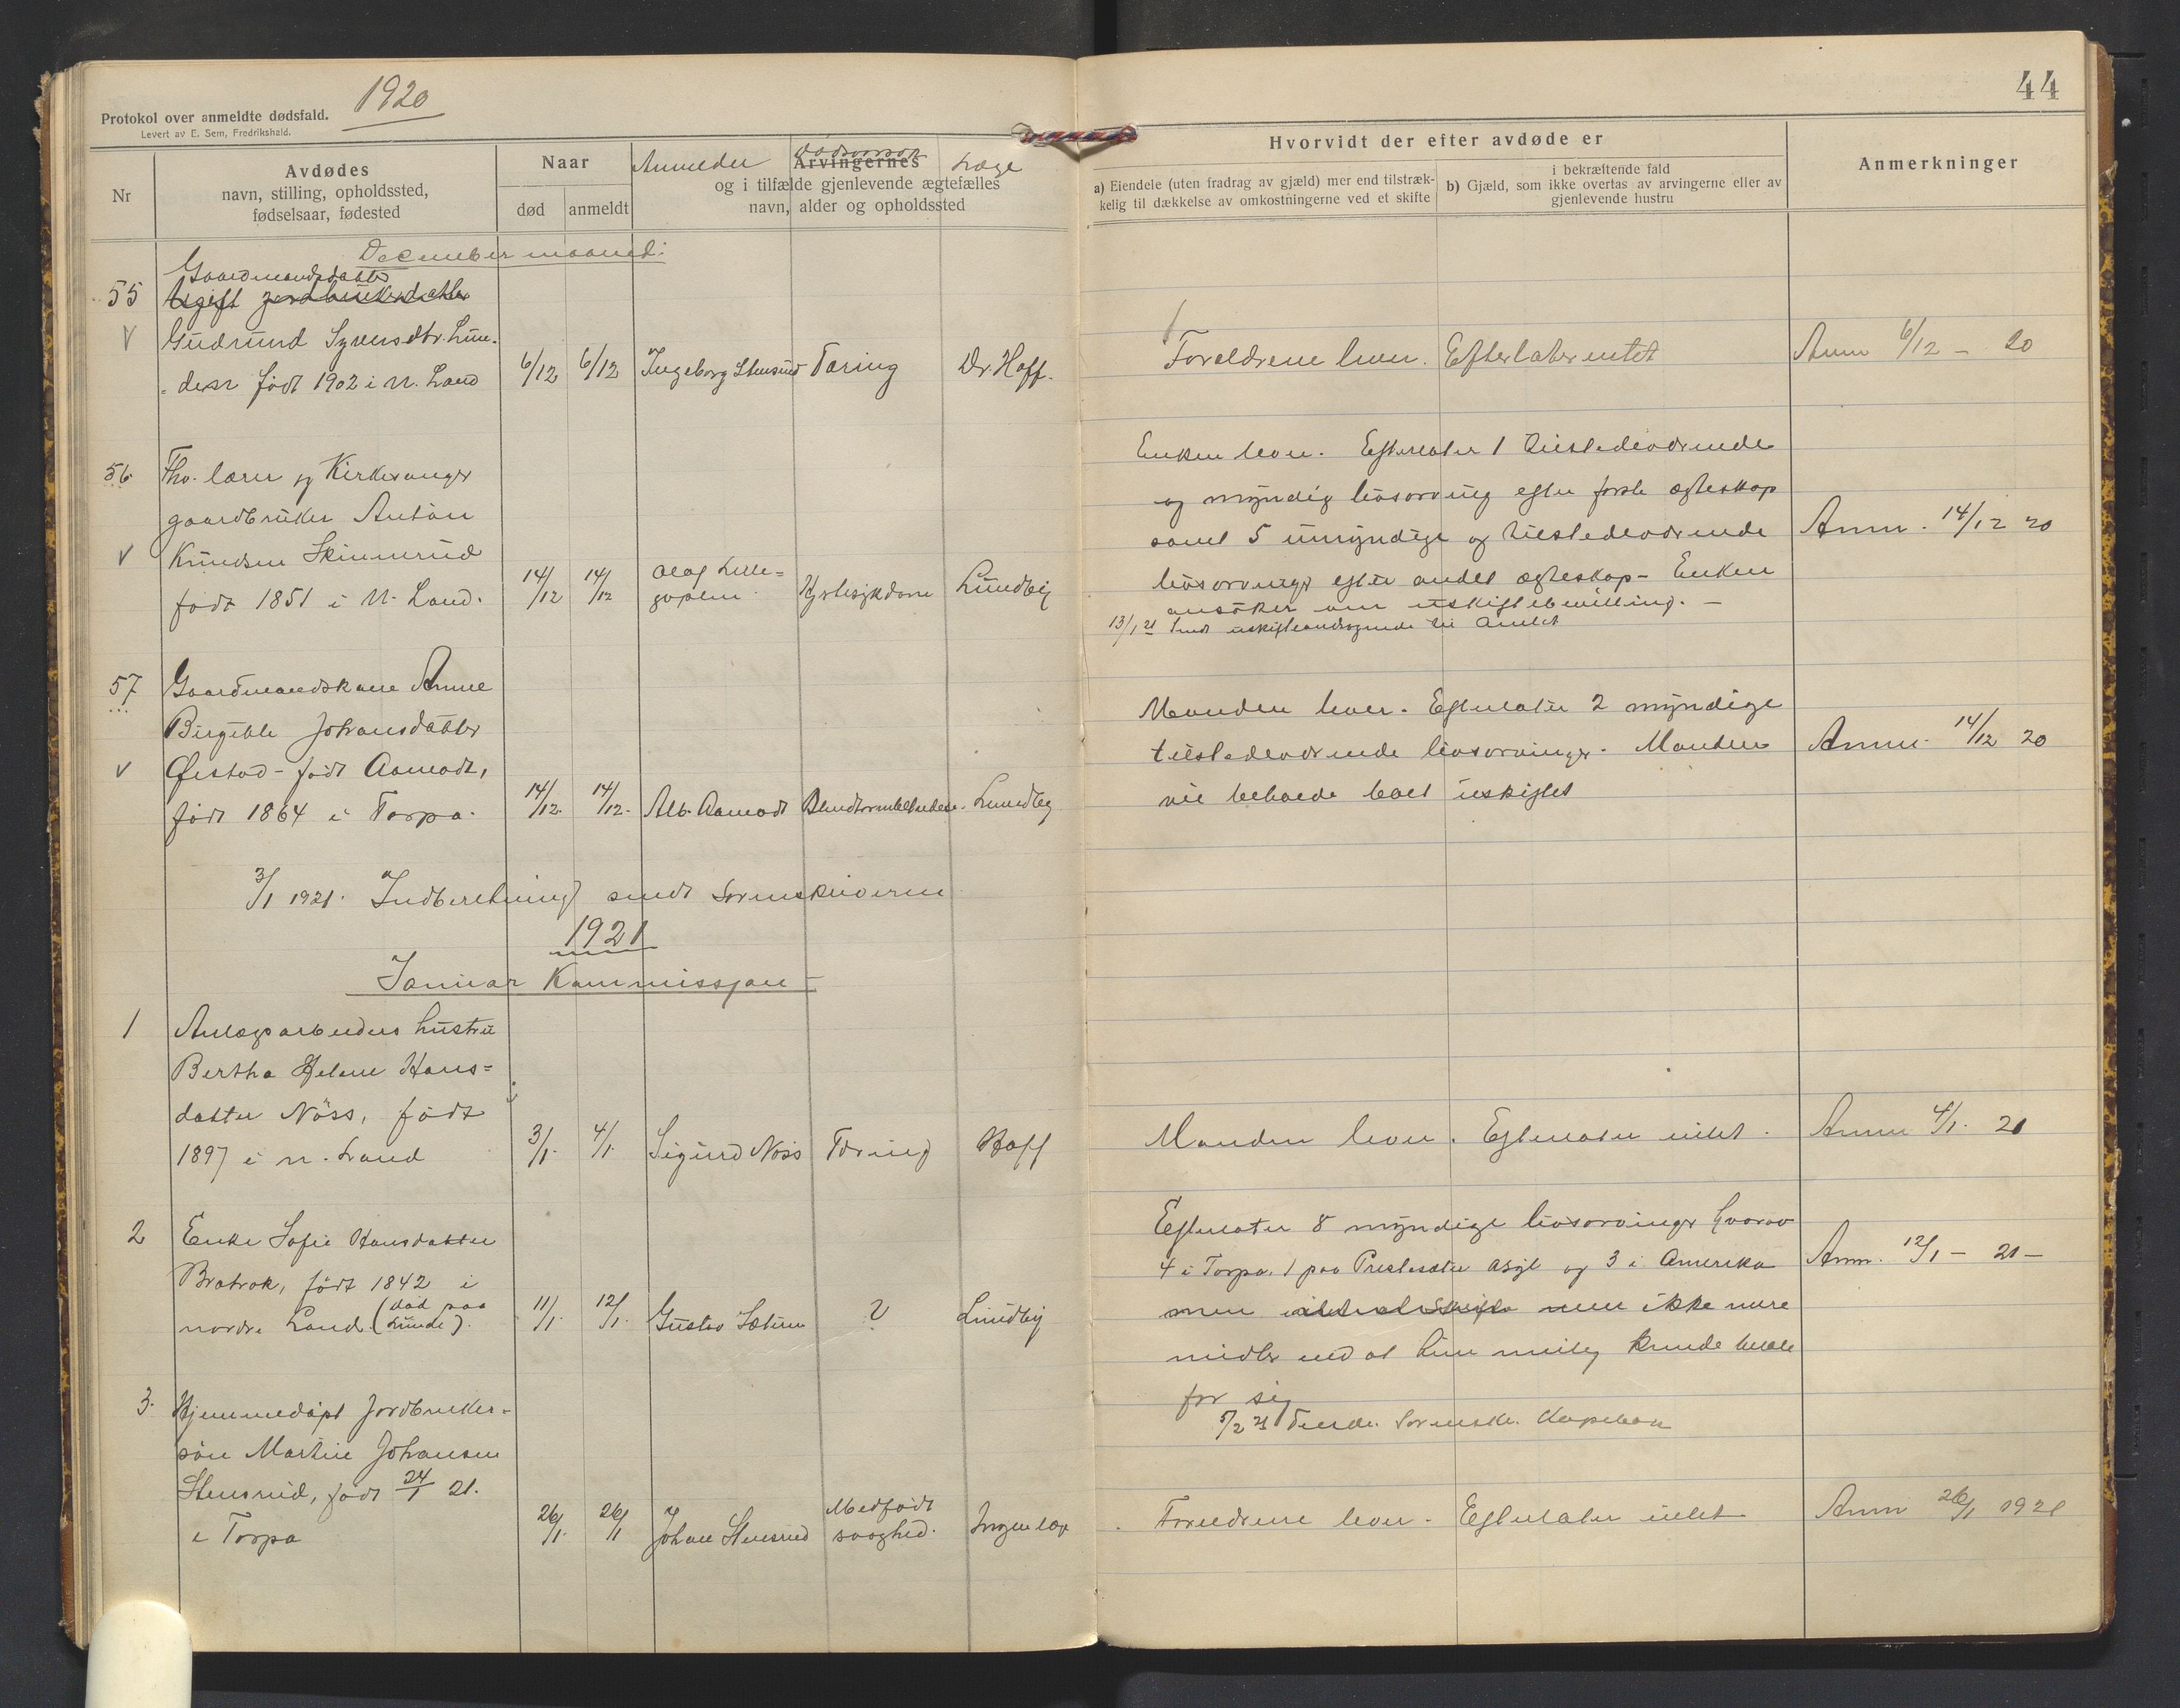 1920
Protokol over anmeldte dødsfald.
Levert av E. Sem, Fredrikshald.
44
Nr
Avdødes
navn, stilling, opholdssted,
fødselsaar, fødested
Naar
død
anmeldt
Anmelder
Dødsaarsak
Læge
Arvingernes
og i tilfælde gjenlevende ægtefælles
navn, alder og opholdssted
Hvorvidt der efter avdøde er
a) Eiendele (uten fradrag av gjæld) mer end tilstræk-
kelig til dækkelse av omkostningerne ved et skifte
i bekræftende fald
b) Gjæld, som ikke overtas av arvingerne eller av
gjenlevende hustru
Anmerkninger
December maaned:
55
Gaardmandsdatter
Ugift jordbrukerdatter
Gudrund Syversdtr. Lun-
den født 1902 i N. Land
6/12 6/12 Ingeborg Stensrud Tæring Dr. Hoff.
Forældrene lever. Efterlater intet
Anm 6/12 - 20
56
Fhv. lærer og Kirkesanger
gaardbruker Anton
Knudsen Skinnerud
født 1851 i N. Land.
14/12 14/12 Olaf Lille=
Hjertesykdom Lundby
Enken lever. Efterlater 1 tilstedeværende
og myndig livsarving efter første ægteskap
samt 5 umyndige og tilstedeværende
livsarvinger efter andet ægteskap - Enken
ansöker om uskiftebevilling. -
13/1 21 Sendt uskifteandragende til Amtet
Anm. 14/12 20
57
Gaardmandskone Anne
Birgitte Johansdatter
Øistad - født Aamodt,
født 1864 i Torpa.
14/12. 14/12. Alb. Aamodt Lundby
Manden lever. Efterlater 2 myndige
tilstedeværende livsarvinger. Manden
vil beholde boet uskiftet
Anm. 14/12 20
3/1 1921. Indberetning sendt Sorenskriveren
1921
Januar
1
Anlægsarbeiders hustru
Bertha Helene Hans=
datter Nöss, født
1897 i N. Land
3/1. 4/1. Sigurd Nöss Tæring Hoff
Manden lever. Efterlater intet.
Anm 4/1. 21
2
Enke Sofie Hansdatter
Bratrok, født 1842 i
nordre Land. (död paa
Lunde).
11/1. 12/1. Gustav Sæteren ? Lundby
Efterlater 8 myndige livsarvinger hvorav
4 i Torpa, 1 paa Presteseter asyl og 3 i Amerika
men ikke mere
midler end at hun kunde betale
for sig
5/2 21 Tilsendt Sorenskr.
Anm. 12/1 - 21 -
3.
Hjemmedöpt Jordbruker=
sön Martin Johansen
Stensrud, født 24/1 21.
i Torpa
26/1. 26/1 Johan Stensrud Medfödt
svaghed. Ingen læge
Forældrene lever. Efterlater intet
Anm 26/1 1921